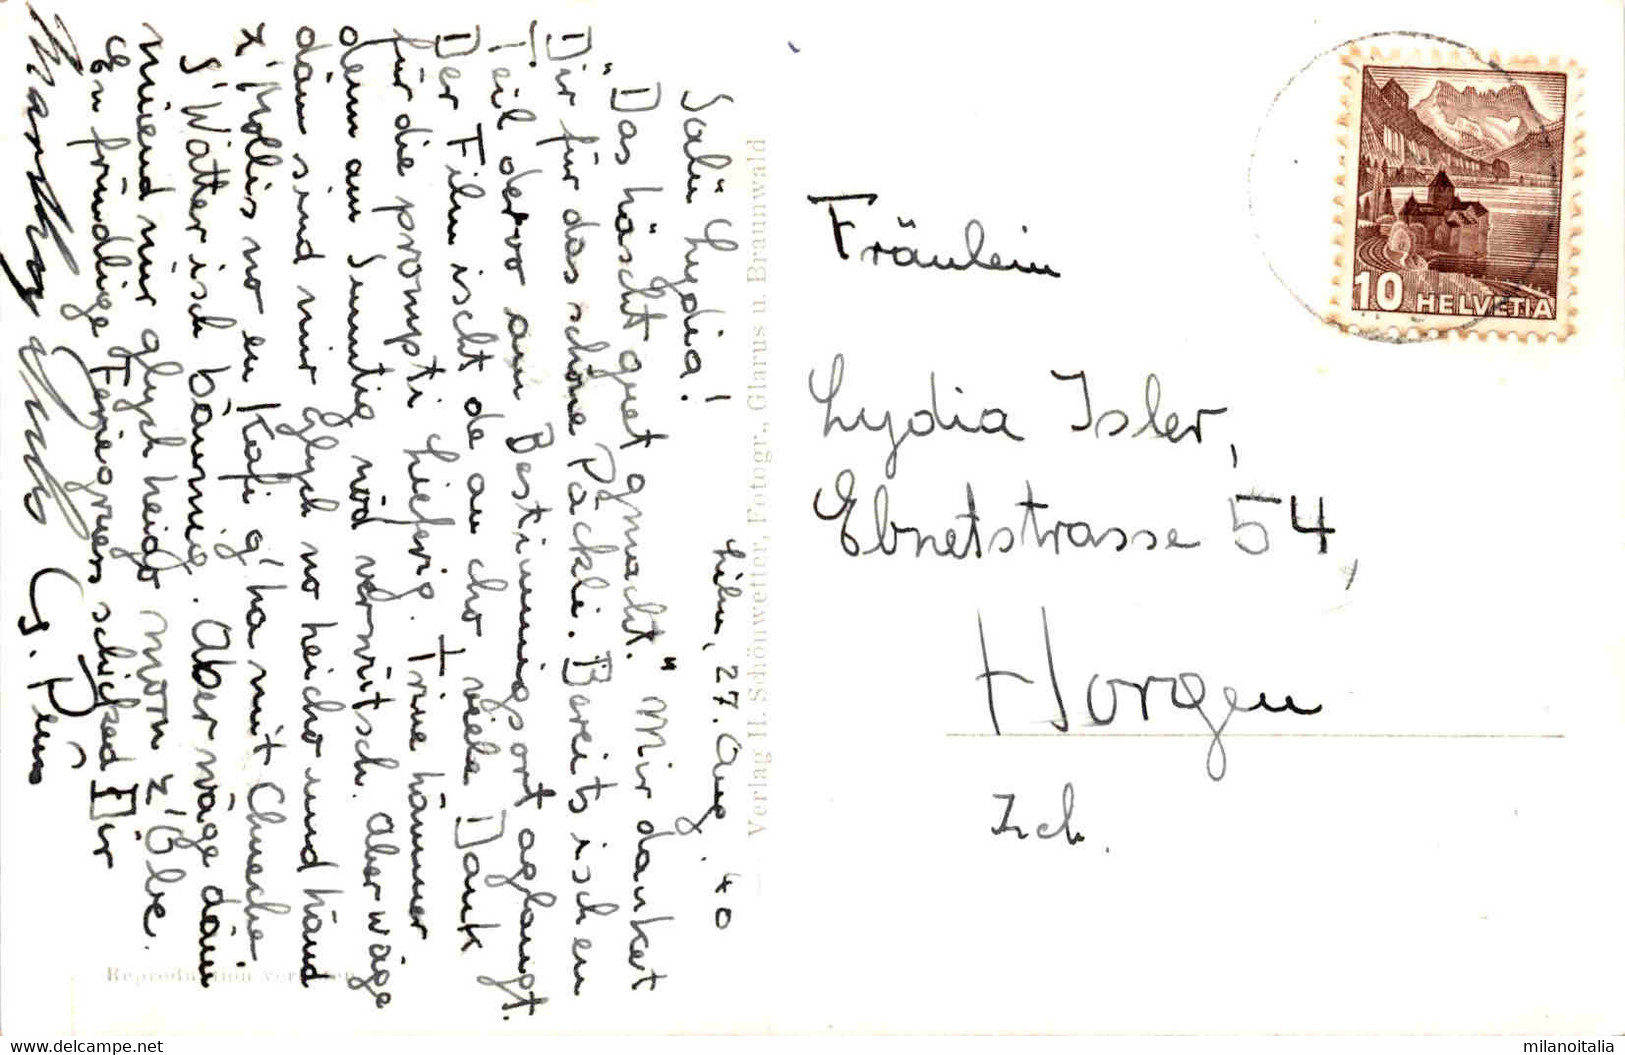 Lihn, 27. Aug. 40
Salü Lydia!
"Das häscht guet gmacht." Mir danket
Dir für das schöne Päckli. Bereits isch en
Teil dervo am Bestimmigsort aglangt.
Der Film ischt de au cho, viele Dank
für die prompti Lieferig. Trine hämmer
denn am Sunntig nöd verwütsch. Aber wäge
däm sind mir glych no heicho und händ
z'Mollis no en Kafi g'ha mit Chueche
S'Wätter isch bäumig. Aber wäge däm
müend mir glych heigo morn z'Obe.
En fründlige Feriegruess schicked Dir
G. Pünt
Fräulein
Lydia Isler,
Ebnetstrasse 54,
Horgen
Zch.
10 HELVETIA
Verlag H. Schönwetter, Fotogr., Glarus u. Braunwald
Reproduktion verboten
https://www.delcampe.net
milanoitalia